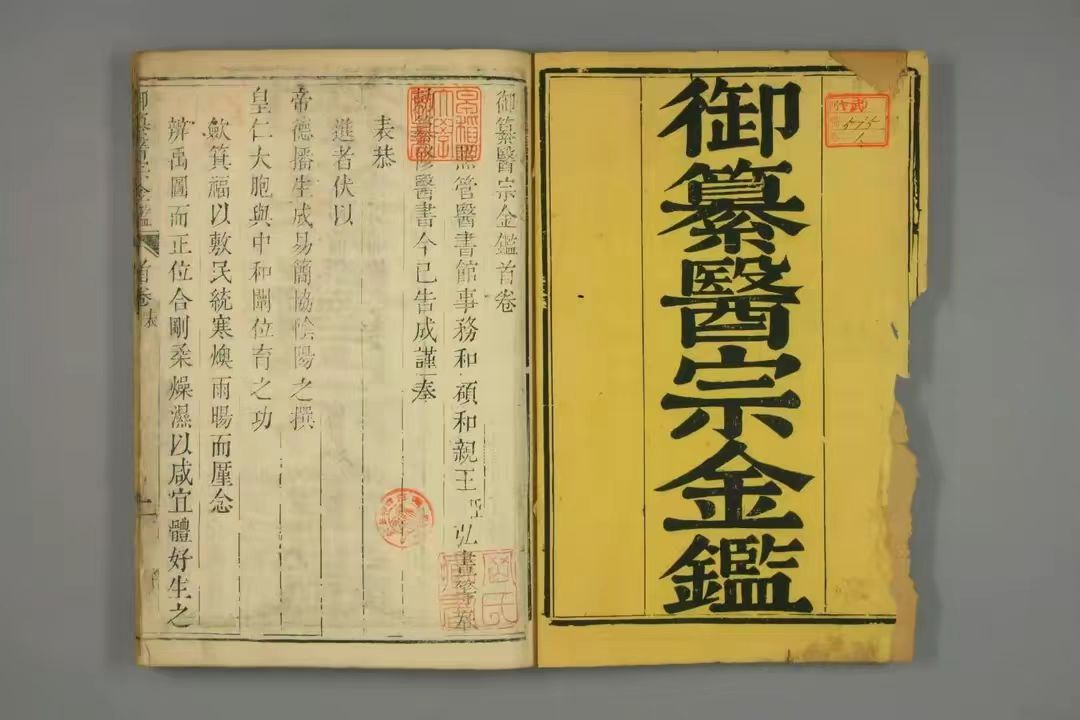 御纂醫宗金鑑
御纂醫宗金鑑首卷
照管醫書館事務和碩和親王臣弘晝等奉
敕纂修醫書今已告成謹奉
表恭
進者伏以
帝德播生成易簡協陰陽之撰
皇仁大胞與中和闢位育之功
歛箕福以敷民統寒燠雨暘而厪念
辨禹圖而正位合剛柔燥濕以咸宜體好生之
御纂醫宗金鑑
首卷
表
一
515
1